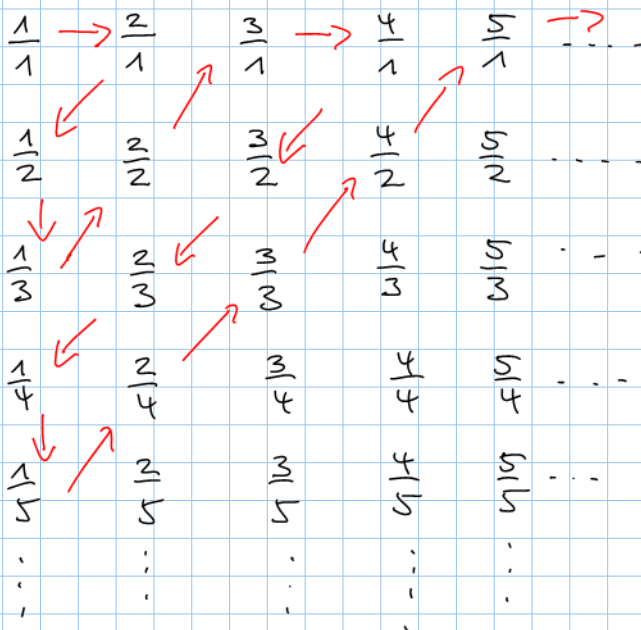 1/1 → 2/1 3/1 → 4/1 5/1 →? ....
1/2 2/2 3/2 4/2 5/2 ....
1/3 2/3 3/3 4/3 5/3 ...
1/4 2/4 3/4 4/4 5/4 ...
1/5 2/5 3/5 4/5 5/5 ...
⋮ ⋮ ⋮ ⋮ ⋮